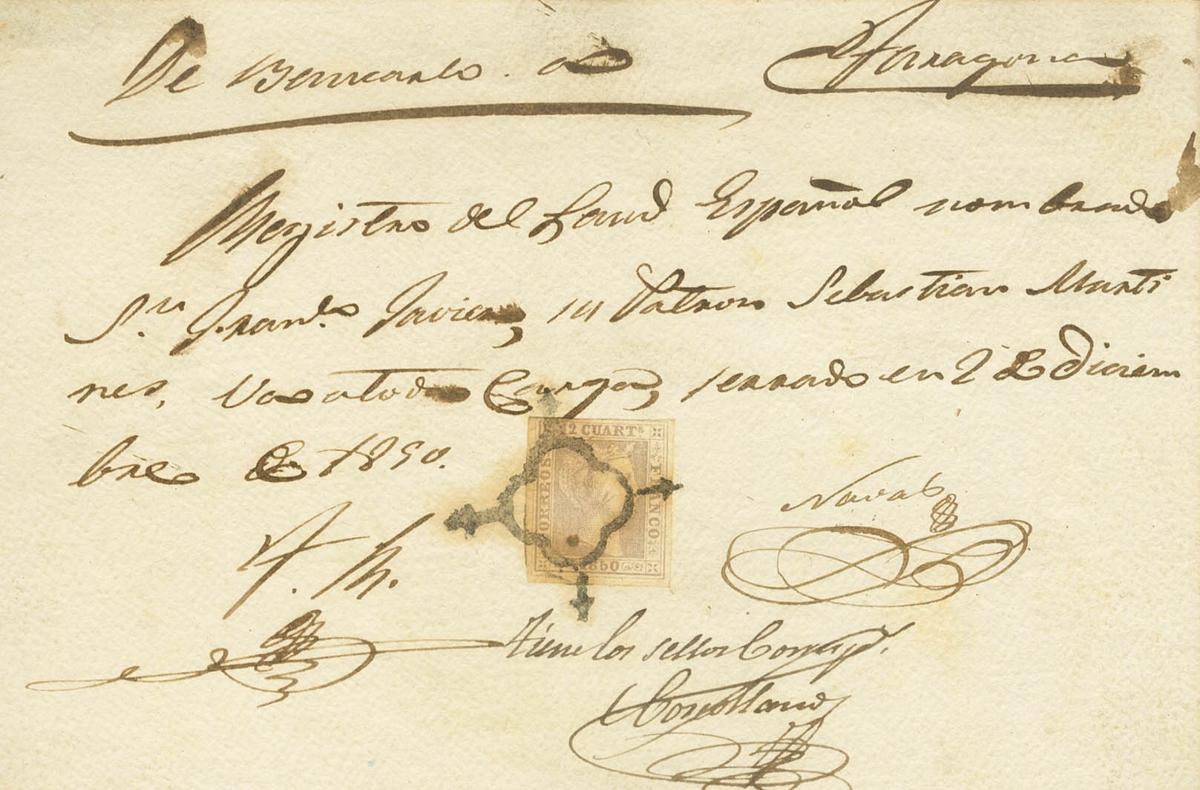 De Benicarlo a Tarragona
Registro del Laud Español nombrado
Sn. Franco. Javier, su Patron Sebastian Marti
nes, Va a toda Carga, serrado en 2 de Diciem
bre de 1850.
12 CUARTs
CORREOS
FRANCO
1850
Naval
Tiene los sellos Corresp.